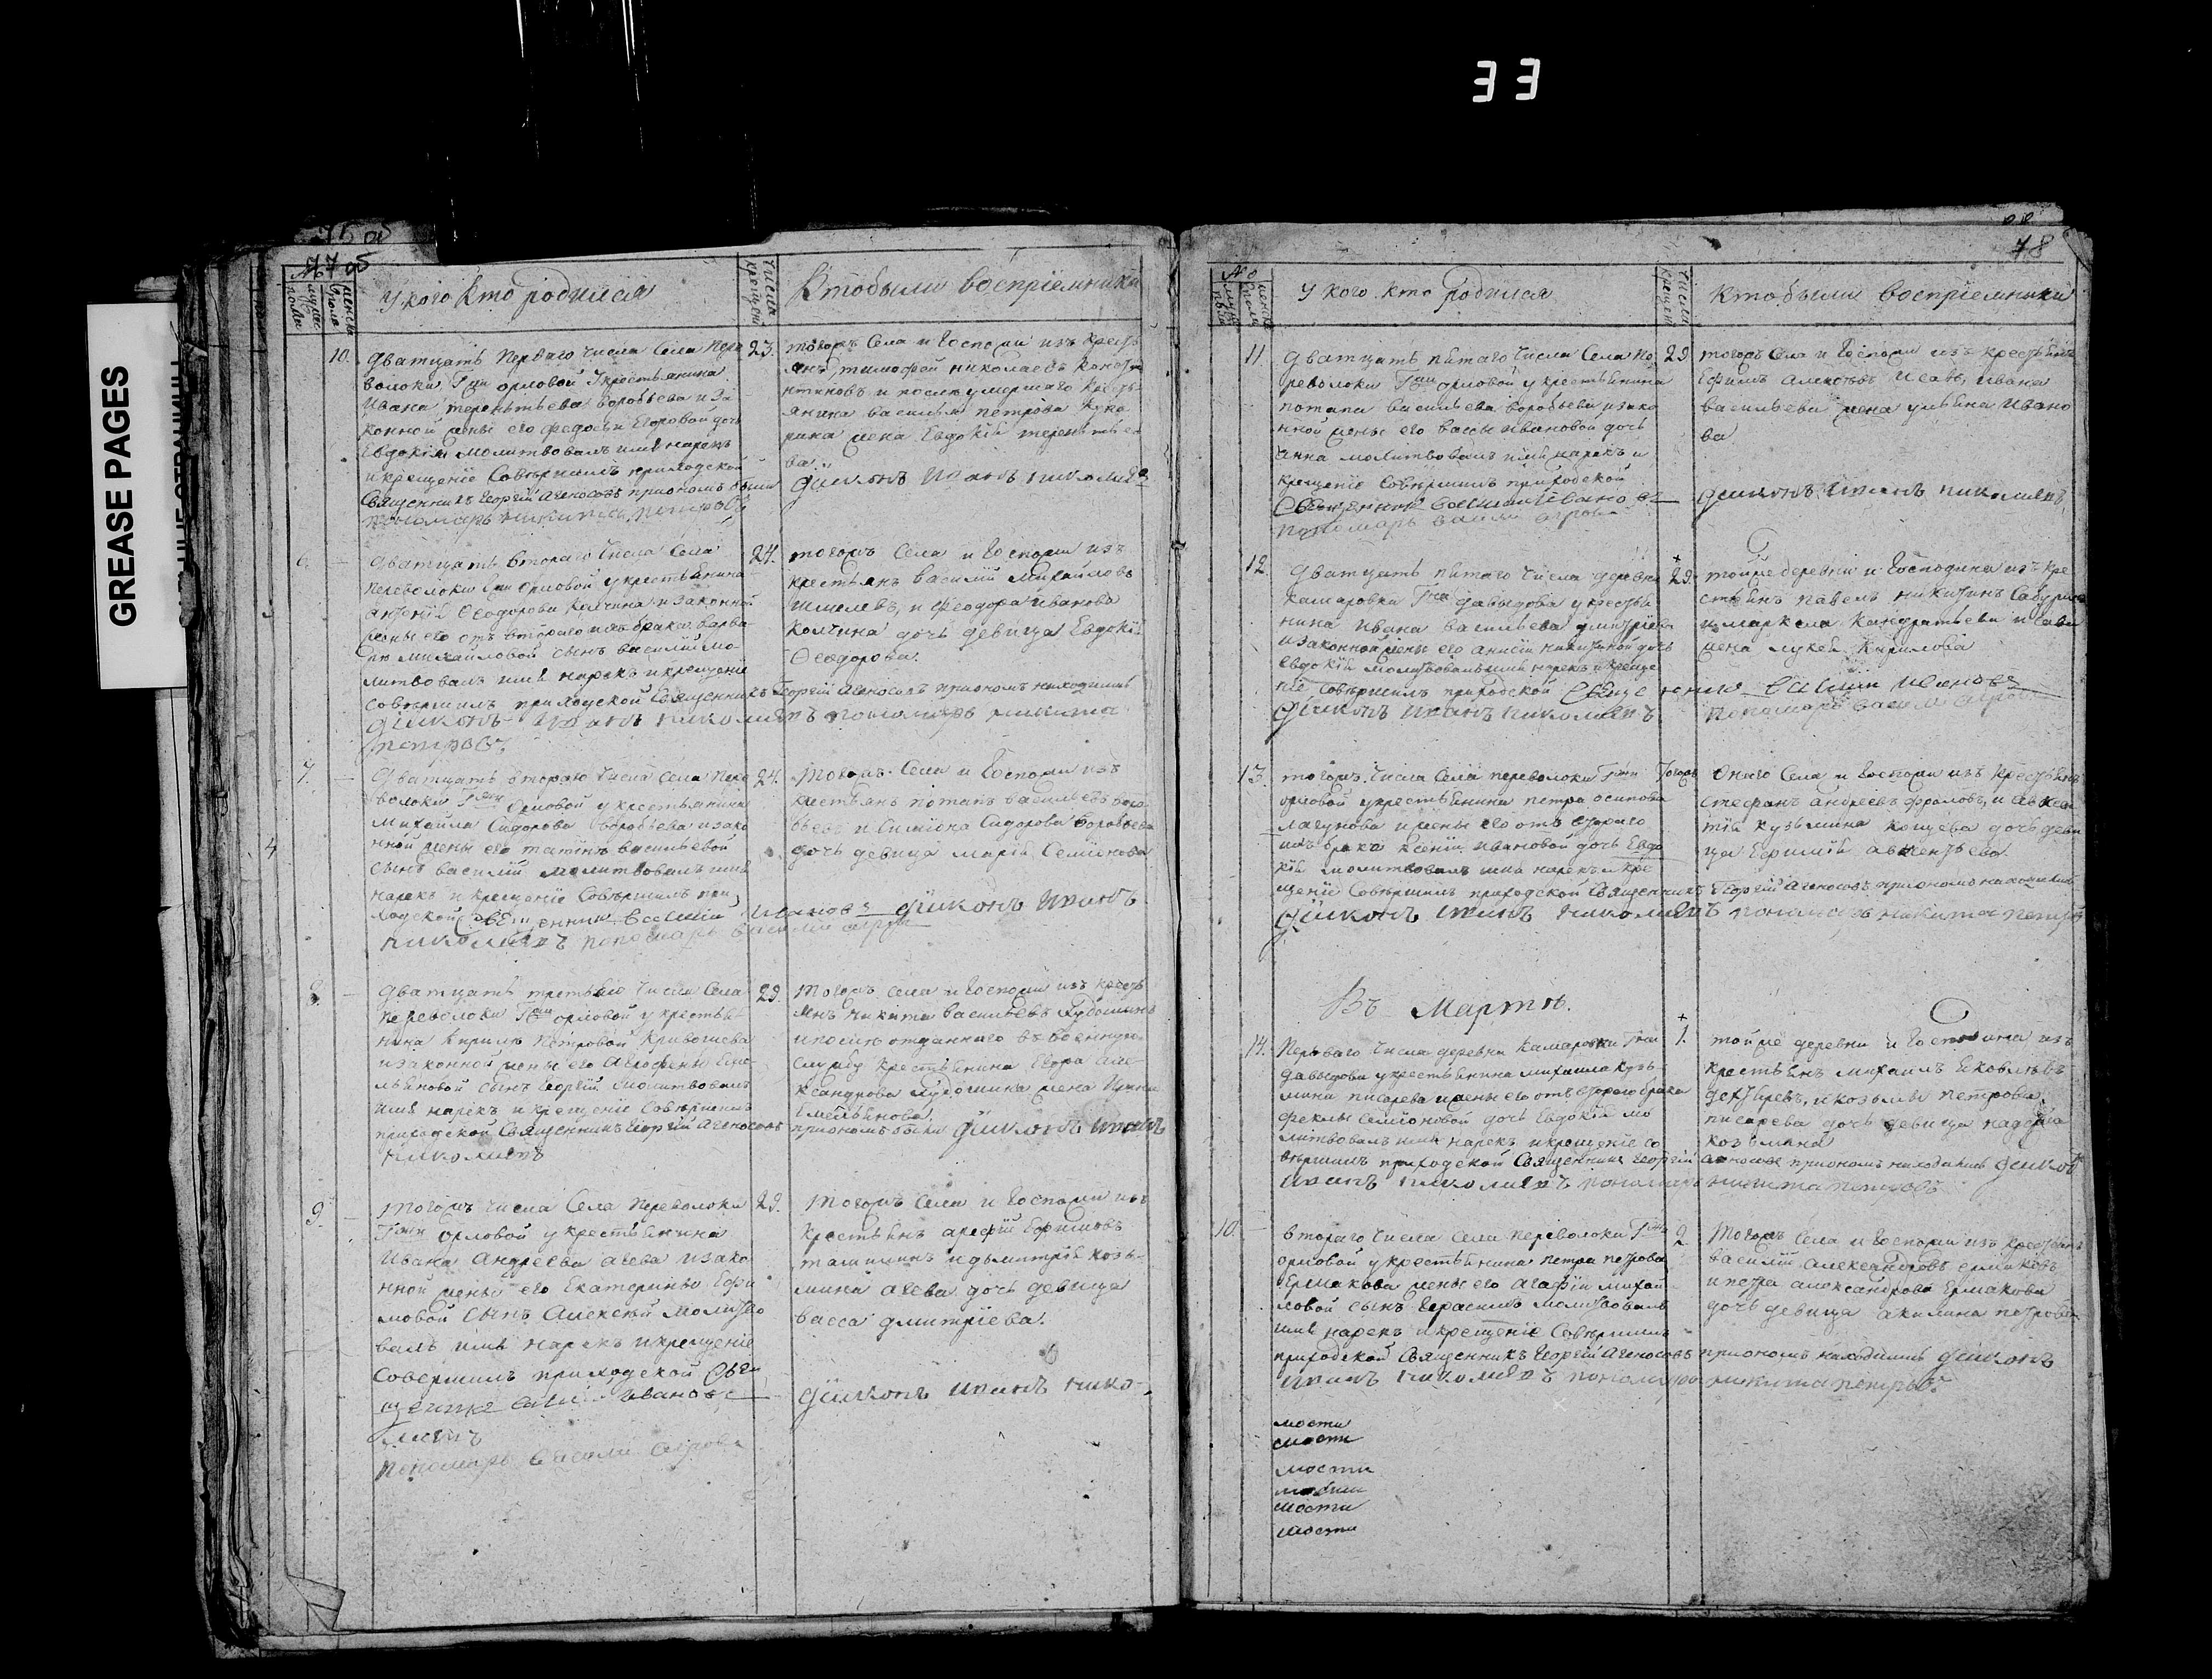 33
GREASE PAGES
77 об
№
мужеска пола
женска пола
У кого кто родился
Числа крещения
Кто были восприемники
10.
дватцать перваго числа Села Пере
волоки Гжи орловой У крестьянина
Ивана терентьева воробьева и за
конной жены его федосьи Егоровой дочь
Евдокия молитвовалъ имя нарекъ
и крещение Совершилъ приходской
Священникъ Георгий Агеносовъ при ономъ были
пономарь никита петровъ
23.
тогожъ Села и Госпожи изъ кресть
янъ, тимофей николаевъ
и после умершаго кресть
янина василья петрова
жена Евдокия терентье
ва
Дияконъ Иванъ николаевъ
6.
дватцать втораго числа Села
переволоки Гжи Орловой у крестьянина
Феодорова Колчина и законной
жены его отъ втораго изъ брака варва
ры михайловой сынъ василий мо
литвовалъ имя нарекъ и крещение
совершилъ приходской Священникъ Георгий Агеносовъ при ономъ находились
дияконъ Иванъ николаевъ пономарь никита
петровъ
24.
тогожъ Села и Госпожи изъ
крестьянъ василий михайловъ
Шмелевъ, и Феодора Иванова
Колчина дочь девица Евдокия
Феодорова.
7.
дватцать втораго числа Села Пере
волоки Гжи Орловой у крестьянина
михайла Сидорова воробьева и зако
нной жены его татияны васильевой
сынъ василий молитвовалъ имя
нарекъ и крещение Совершилъ при
ходской Священникъ василий Ивановъ дияконъ Иванъ
николаевъ пономарь василий
24.
тогожъ Села и Госпожи изъ
крестьянъ потапъ васильевъ воро
бьевъ и Симиона Сидорова воробьева
дочь девица мария Семионова
8.
дватцать третьяго числа Села
переволоки Гжи орловой у крестья
нина Кирилы Петровой Кривошева
и законной жены его Агрофены Еме
льяновой сынъ Георгий молитвовалъ
имя нарекъ и крещение Совершилъ
приходской Священникъ Георгий Агеносовъ
николаевъ
29.
тогожъ села и Госпожи изъ кресть
янъ никита васильевъ Кудошинъ
и после отданнаго въ военную
службу крестьянина Егора Але
ксандрова Кудошина жена Ирина
Емельянова.
при ономъ были дияконъ Иванъ
9.
тогожъ числа Села Переволоки
Гжи орловой у крестьянина
Ивана Андреева агева и зако
нной жены его Екатерины Ефи
мовой сынъ Алексей молитво
валъ имя нарекъ и крещение
совершилъ приходской Свя
щенникъ василий Ивановъ
лаевъ
пономарь василий
29.
тогожъ Села и Госпожи изъ
крестьянъ арефий Ефимовъ
и дьмитрия козь
мина агева дочь девица
васса дмитриева.
дияконъ Иванъ нико
78
№
У кого кто родился
Кто были восприемники
11
дватцать пятаго числа Села Пе
револоки Гжи орловой у крестьянина
потапа васильева воробьева и зако
нной жены его вассы ивановой дочь
анна молитвовалъ имя нарекъ и
крещение совершилъ приходской
Священникъ василий Ивановъ
пономарь василий
29
тогожъ Села и Госпожи изъ крестьянъ
Ефимъ алексеевъ Исаевъ, ивана
васильева жена ульяна Ивано
ва
дияконъ Иванъ николаевъ
12.
дватцать пятаго числа деревни
камаровки Гна давыдова у крестья
нина ивана васильева дмитриева
и законной жены его анисии никитиной дочь
Евдокия молитвовалъ имя нарекъ и креще
ние совершилъ приходской Священникъ василий Ивановъ
дияконъ иванъ николаевъ пономарь василий
29.
той же деревни и Господина изъ кре
стьянъ павелъ никитинъ
и маркела Кандратьева исаева
жена лукея Кирилова
13.
тогожъ числа села переволоки Гжи
орловой у крестьянина петра осипова
лагунова и жены его отъ втораго
изъ брака ксении ивановой дочь Евдо
кия молитвовалъ имя нарекъ и кре
щение Совершилъ приходской Священникъ Георгий Агеносовъ при ономъ находились
дияконъ иванъ николаевъ пономарь никита петровъ
Тогожъ
Онаго Села и Госпожи изъ крестьянъ
стефанъ андреевъ фроловъ, и авксен
тия кузьмина кощева дочь деви
ца Ефимия авксентьева.
Въ Марте.
14.
Перваго числа деревни Камаровки Гна
давыдова у крестьянина михаила кузь
мина писарева и жены его отъ втораго брака
феклы семионовой дочь Евдокия мо
литвовалъ имя нарекъ и крещение со
вершилъ приходской Священникъ Георгий Агеносовъ при ономъ находились дияконъ
иванъ николаевъ пономарь никита петровъ
1.
той же деревни и Господина изъ
крестьянъ михаилъ яковлевъ
дехтеревъ, и козьмы петрова
писарева дочь девица надежда
козьмина
10.
втораго числа села переволоки Гжи
орловой у крестьянина петра петрова
Ермакова жены его агафии михай
ловой сынъ герасимъ молитвовалъ
имя нарекъ и крещение Совершилъ
приходской Священникъ Георгий Агеносовъ при ономъ находились дияконъ
иванъ николаевъ пономарь никита петровъ
2
тогожъ Села и Госпожи изъ крестьянъ
василий александровъ ермаковъ
и петра александрова Ермакова
дочь девица акилина петрова
мости
мости
мости
мости
мости